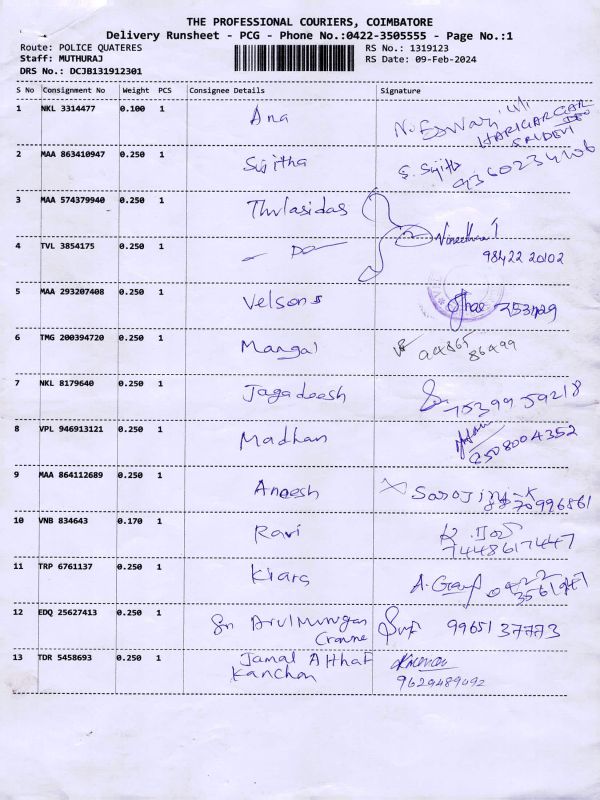 THE PROFESSIONAL COURIERS, COIMBATORE
Delivery Runsheet - PCG - Phone No.:0422-3505555 - Page No.:1
Route: POLICE QUATERES RS No.: 1319123
Staff: MUTHURAJ RS Date: 09-Feb-2024
DRS No.: DCJB131912301
S No Consignment No Weight PCS Consignee Details Signature
1 NKL 3314477 0.100 1 Ana N. Eswari
HARIGARGAR
SRIDEVI
2 MAA 863410947 0.250 1 Sijitha S. Sijith
9360234106
3 MAA 574379940 0.250 1 Thulasidas
4 TVL 3854175 0.250 1 - Do -
98422 20102
5 MAA 293207408 0.250 1 Velsons
6 TMG 200394720 0.250 1 Mangal 94865
86499
7 NKL 8179640 0.250 1 Jagadeesh 7539959218
8 VPL 946913121 0.250 1 Madhan 2508004352
9 MAA 864112689 0.250 1 Aneesh Sarojini-K
10 VNB 834643 0.170 1 Ravi
7448617447
11 TRP 6761137 0.250 1 Kiars 0422
3561947
12 EDQ 25627413 0.250 1 Sri Arulmurugan 99651 37773
Crowne
13 TDR 5458693 0.250 1 Jamal Althaf
Kanchan 9629489092